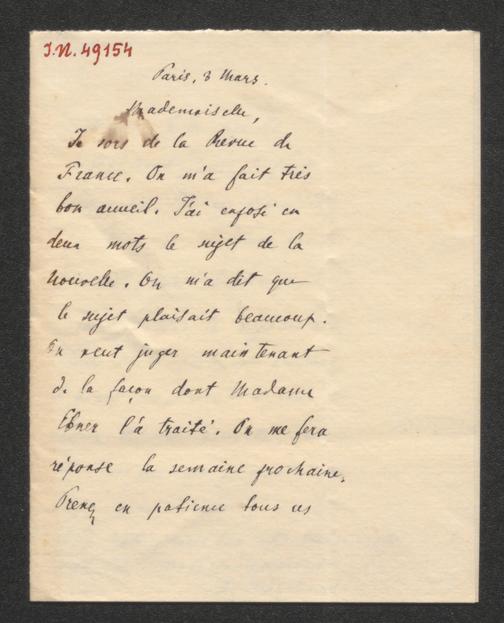 J.N. 49154
Paris, 3 Mars.
Mademoiselle,
Je sors de la Revue de
France. On m'a fait très
bon accueil. J'ai exposé en
deux mots le sujet de la
nouvelle. On m'a dit que
le sujet plaisait beaucoup.
On veut juger maintenant
de la façon dont Madame
Ebner l'a traité. On me fera
réponse la semaine prochaine.
Prenez en patience tous ces